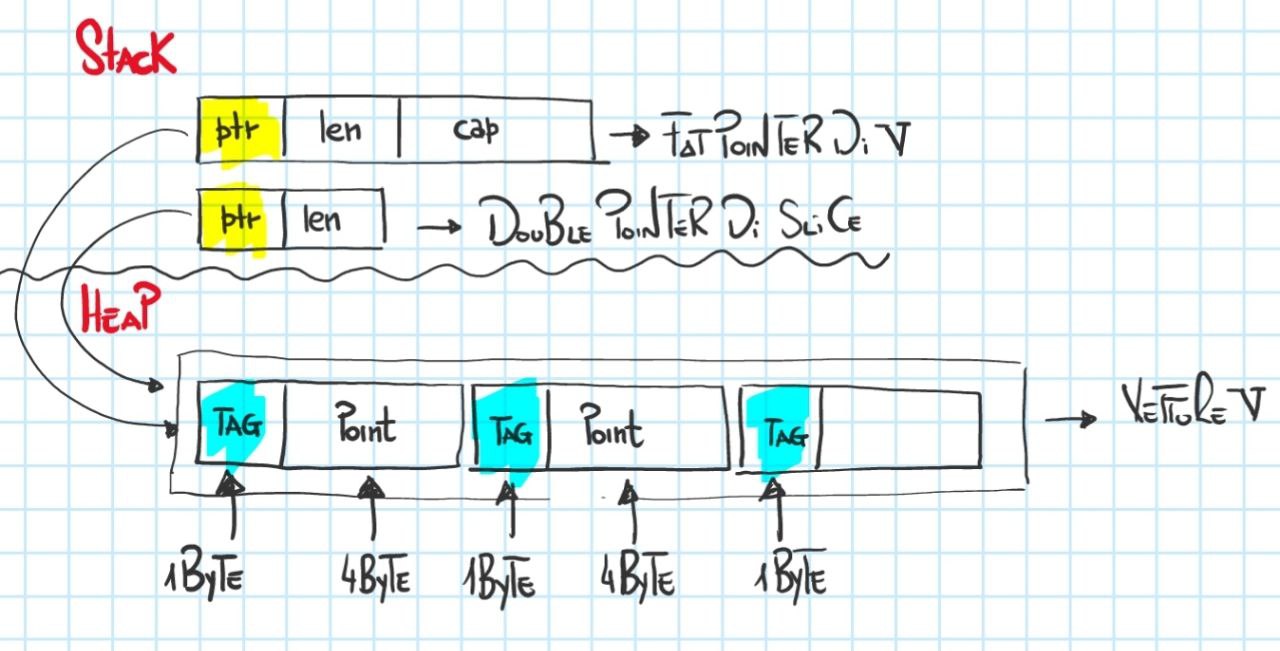 STACK
ptr len cap → FAT POINTER Di V
ptr len → DOUBLE POINTER Di SLiCE
HEAP
TAG Point TAG Point TAG → VETTORE V
1ByTE 4ByTE 1ByTE 4ByTE 1ByTE